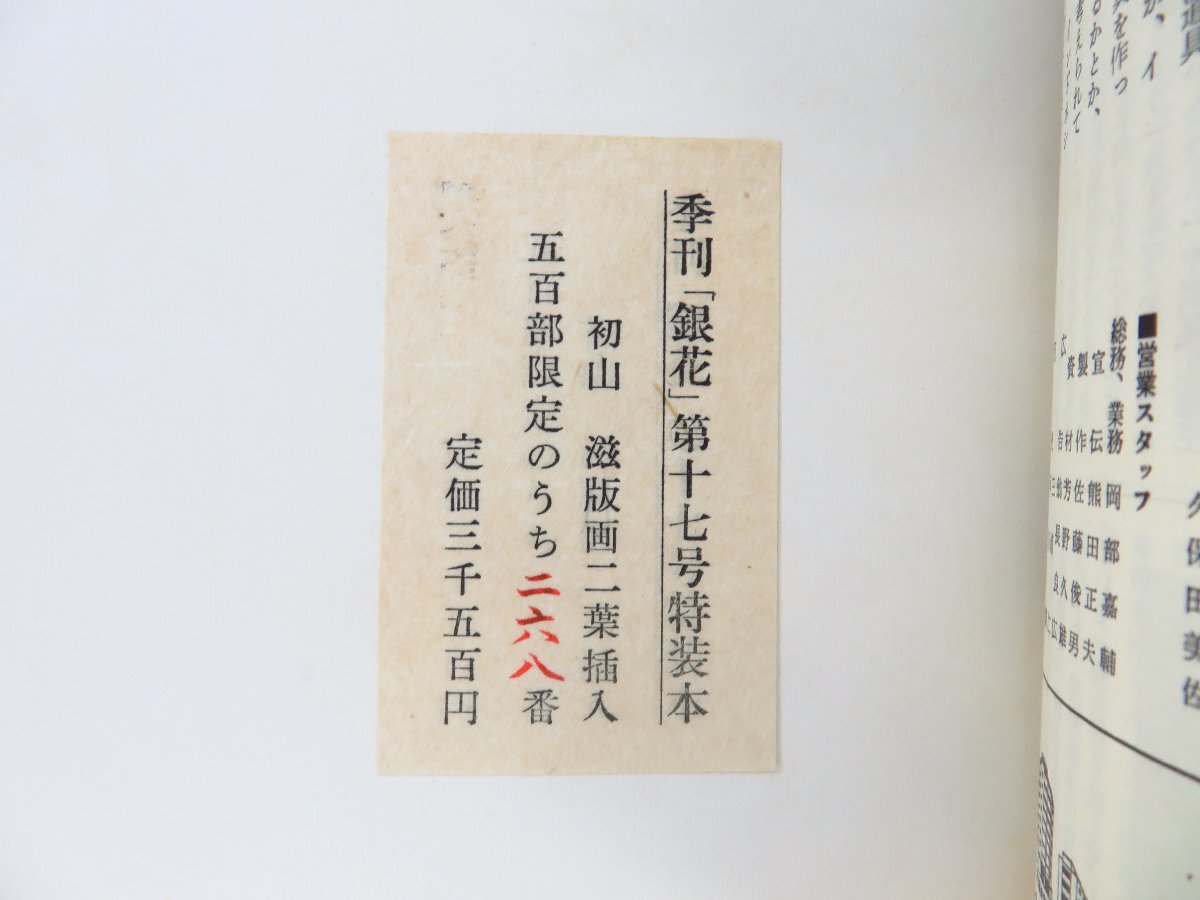 久保田美佐
■営業スタッフ
総務、業務 岡部嘉輔
宣伝 熊田正夫
製作 佐藤俊男
か、イ
を作っ
るかとか、
考えられて
季刊「銀花」第十七号特装本
初山 滋版画二葉插入
五百部限定のうち二六八番
定価三千五百円